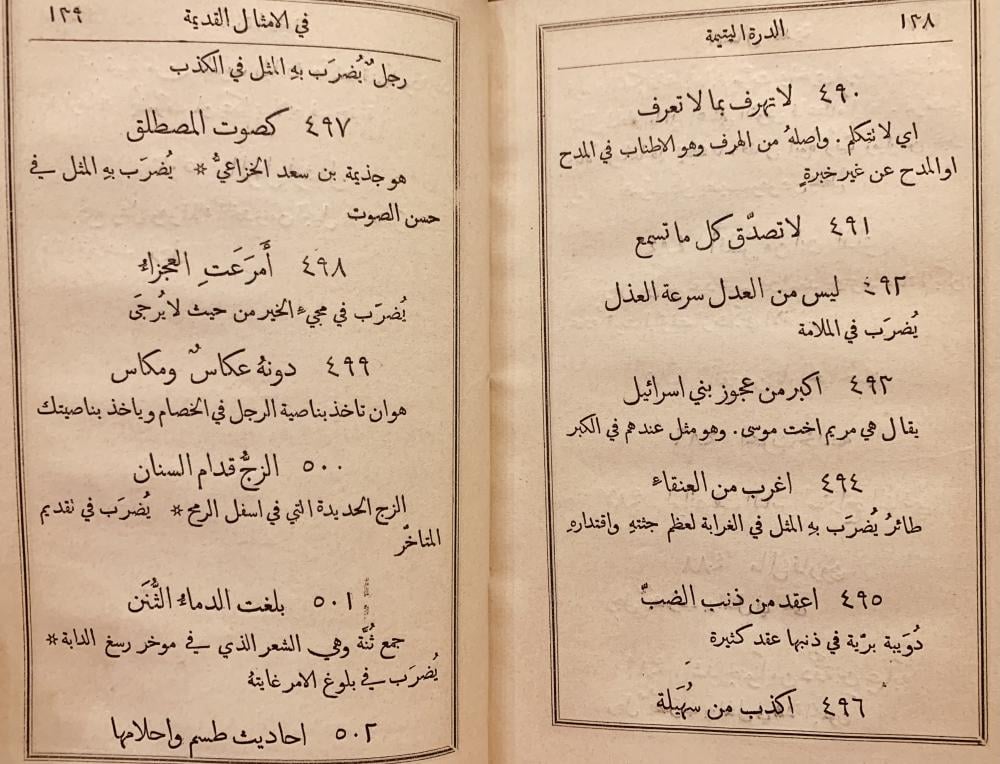 ١٢٨
الدرة اليتيمة
٤٩٠ لا تهرف بما لا تعرف
اي لا تتكلم . واصلهُ من الهرف وهو الاطناب في المدح
او المدح عن غير خبرةٍ
٤٩١ لا تصدَّق كل ما تسمع
٤٩٢ ليس من العدل سرعة العذل
يُضرَب في الملامة
٤٩٣ اكبر من عجوز بني اسرائيل
يقال هي مريم اخت موسى . وهو مثل عندهم في الكبر
٤٩٤ اغرب من العنقاء
طائرُ يُضرَب بهِ المثل في الغرابة لعظم جثتهِ واقتدارهِ
٤٩٥ اعقد من ذنب الضبّ
دُوَيبة برّية في ذنبها عقد كثيرة
٤٩٦ اكذب من سُهَيلة
في الامثال القديمة
١٢٩
رجلٌ يُضرَب بهِ المثل في الكذب
٤٩٧ كصوت المصطلق
هو جذيمة بن سعد الخزاعيُّ * يُضرَب بهِ المثل في
حسن الصوت
٤٩٨ أَمرَعَتِ العجزاء
يُضرَب في مجيءِ الخير من حيث لا يُرجَى
٤٩٩ دونهُ عكاسٌ ومكاس
هو ان تاخذ بناصية الرجل في الخصام وياخذ بناصيتك
٥٠٠ الزجُّ قدام السنان
الزج الحديدة التي في اسفل الرمح * يُضرَب في تقديم
المتاخّر
٥٠١ بلغت الدماءُ الثُّنَن
جمع ثُنَّة وهي الشعر الذي في موخر رسغ الدابة *
يُضرَب في بلوغ الامر غايتهُ
٥٠٢ احاديث طسم واحلامها